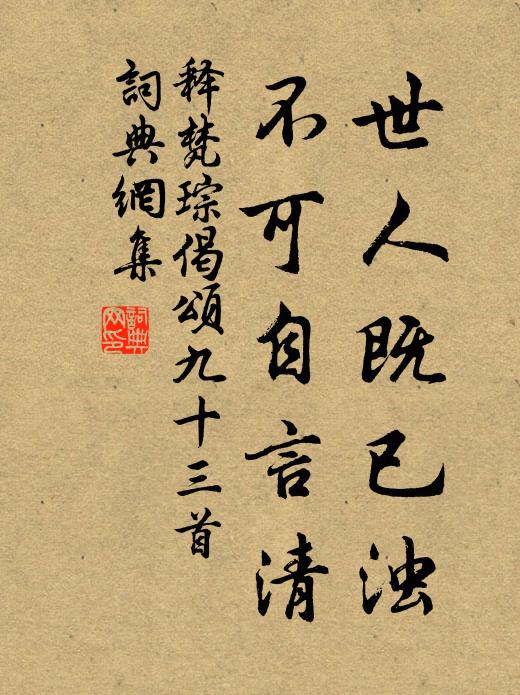 世人既已浊
不可自言清
释梵琮偈頌九十三首
詞典網集
詞典网印